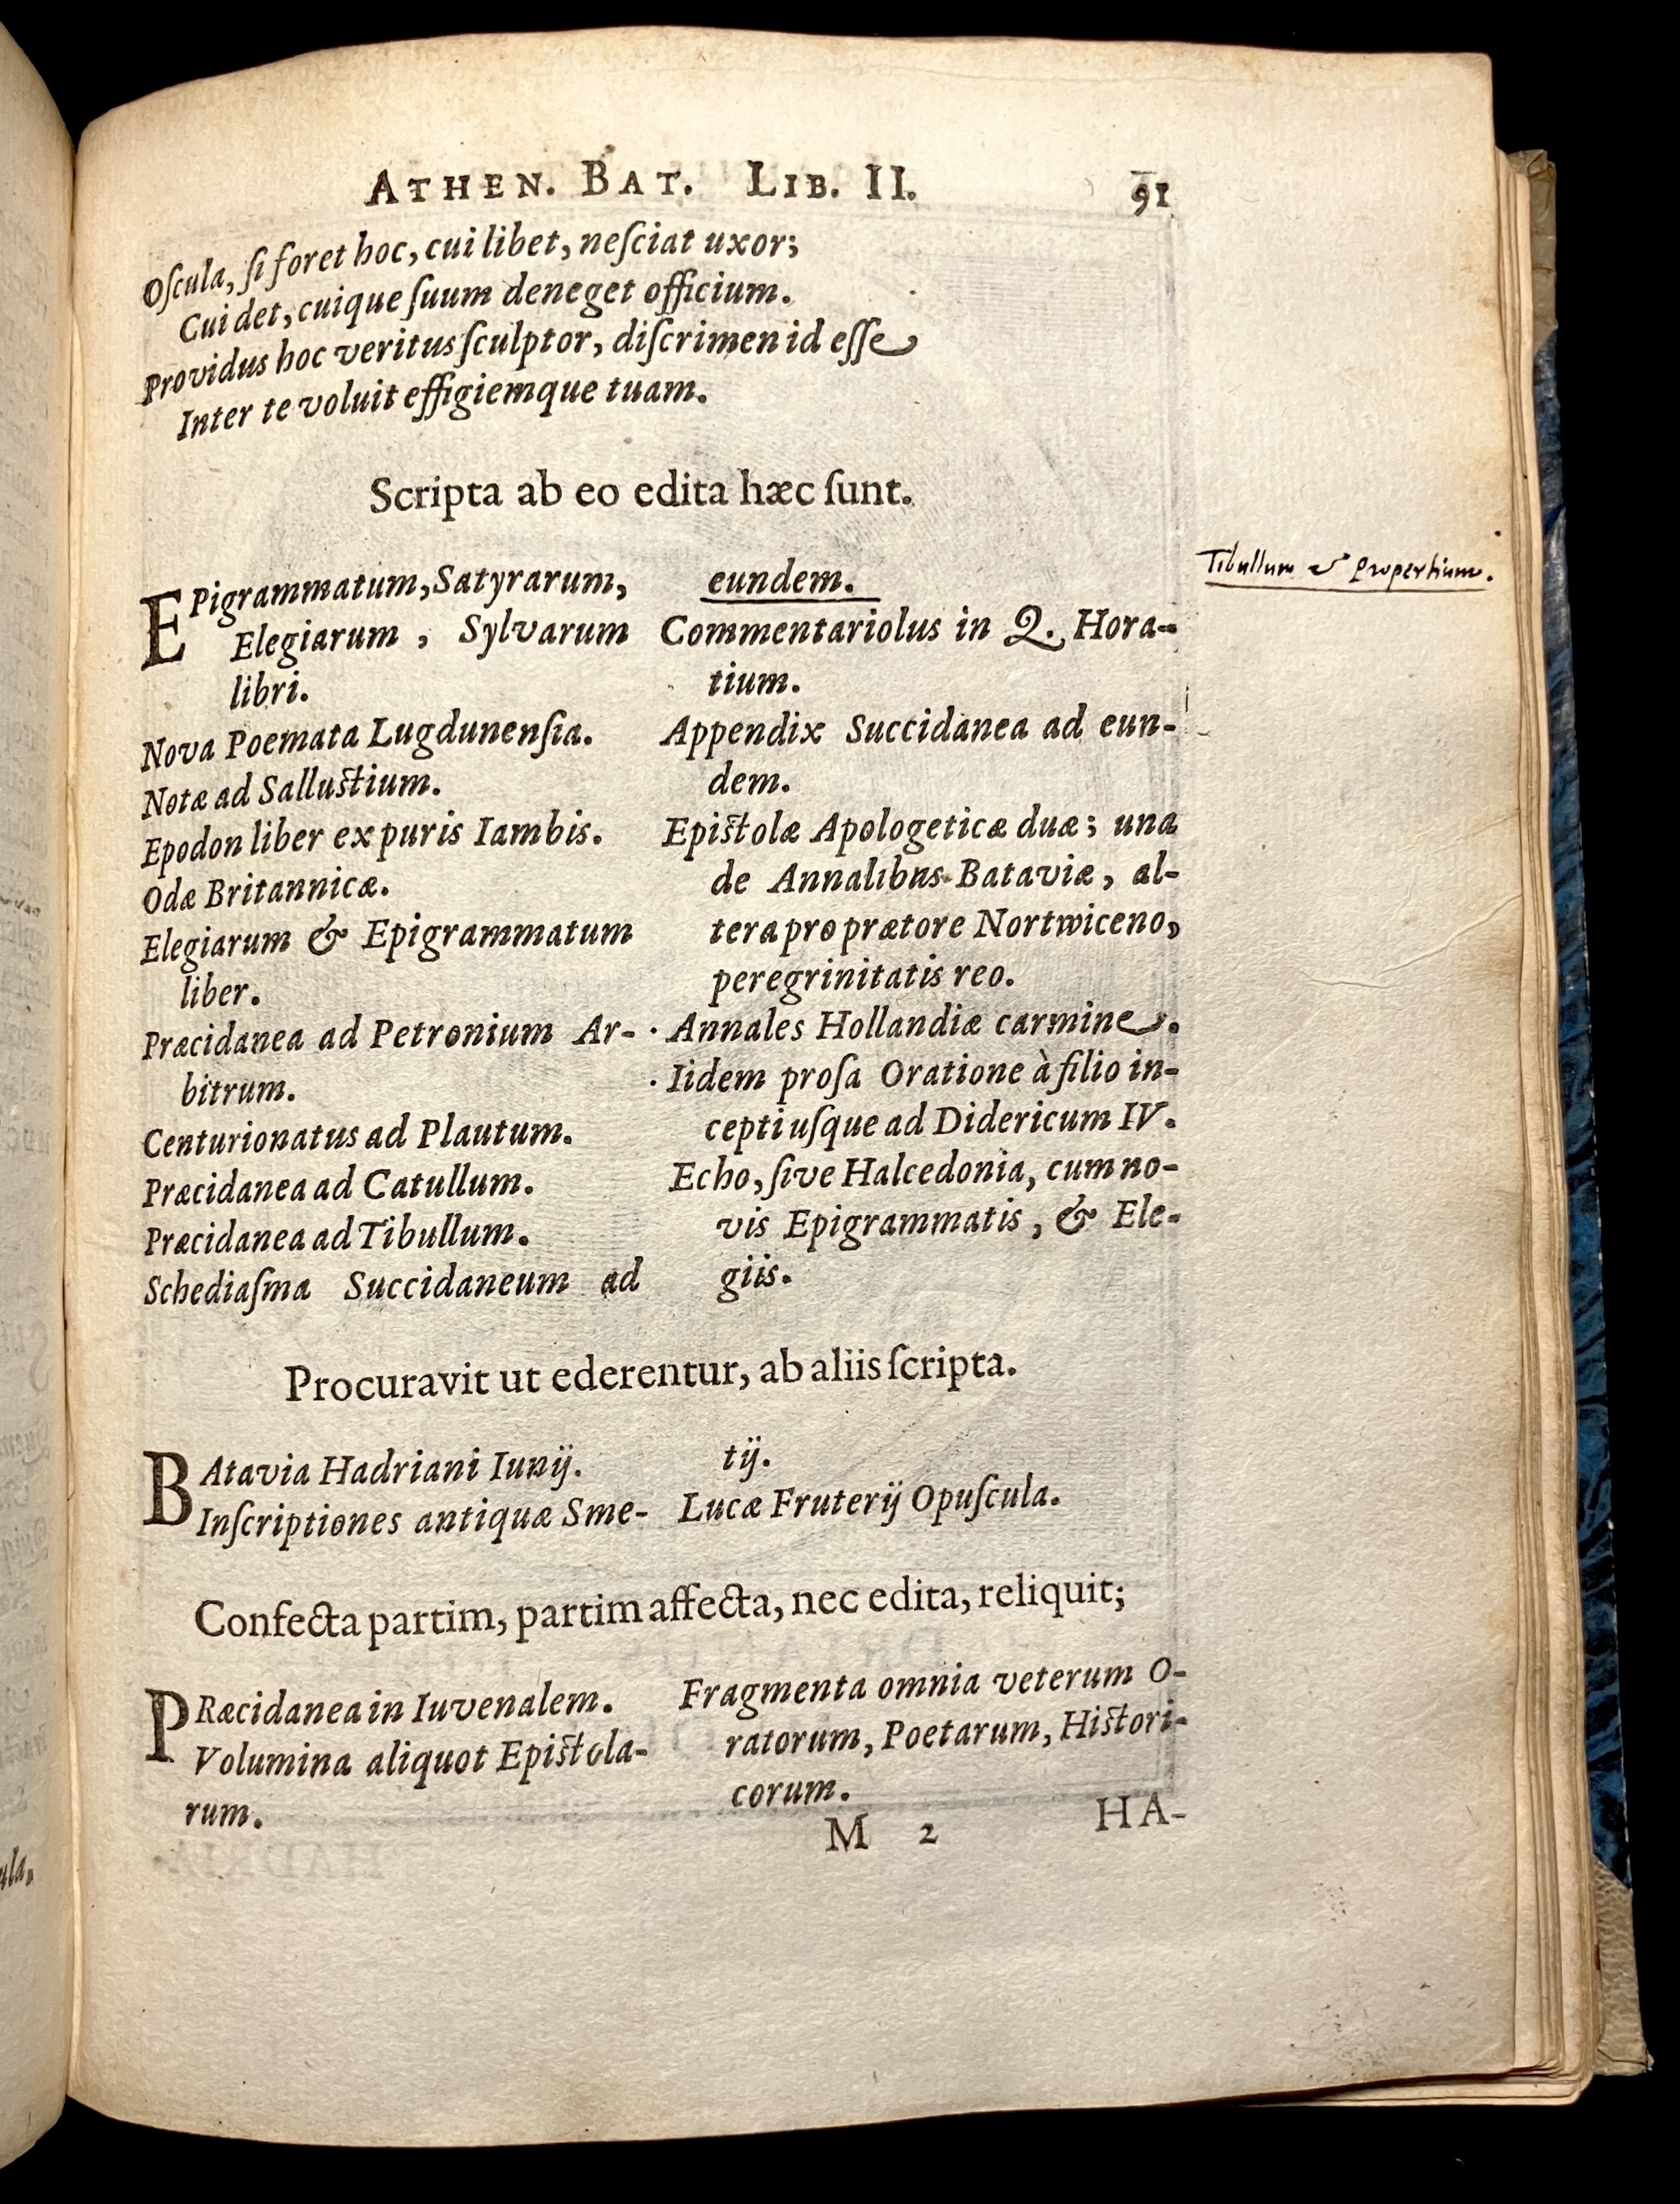 ATHEN. BAT. LIB. II. 91
Oſcula, ſi foret hoc, cui libet, neſciat uxor;
Cui det, cuique ſuum deneget officium.
Providus hoc veritus ſculptor, diſcrimen id eſſe
Inter te voluit effigiemque tuam.
Scripta ab eo edita hæc ſunt.
EPigrammatum, Satyrarum,
Elegiarum, Sylvarum
libri.
Nova Poemata Lugdunenſia.
Notæ ad Salluſtium.
Epodon liber ex puris Iambis.
Odæ Britannicæ.
Elegiarum & Epigrammatum
liber.
Præcidanea ad Petronium Ar-
bitrum.
Centurionatus ad Plautum.
Præcidanea ad Catullum.
Præcidanea ad Tibullum.
Schediaſma Succidaneum ad
eundem.
Tibullum & Propertium.
Commentariolus in Q. Hora-
tium.
Appendix Succidanea ad eun-
dem.
Epiſtolæ Apologeticæ duæ; una
de Annalibus Bataviæ, al-
tera pro prætore Nortwiceno,
peregrinitatis reo.
Annales Hollandiæ carmine.
Iidem proſa Oratione à filio in-
cepti uſque ad Didericum IV.
Echo, ſive Halcedonia, cum no-
vis Epigrammatis, & Ele-
giis.
Procuravit ut ederentur, ab aliis ſcripta.
BAtavia Hadriani Iunij.
Inſcriptiones antiquæ Sme-
tij.
Lucæ Fruterij Opuſcula.
Confecta partim, partim affecta, nec edita, reliquit;
PRæcidanea in Iuvenalem.
Volumina aliquot Epiſtola-
rum.
Fragmenta omnia veterum O-
ratorum, Poetarum, Hiſtori-
corum.
M 2 HA-